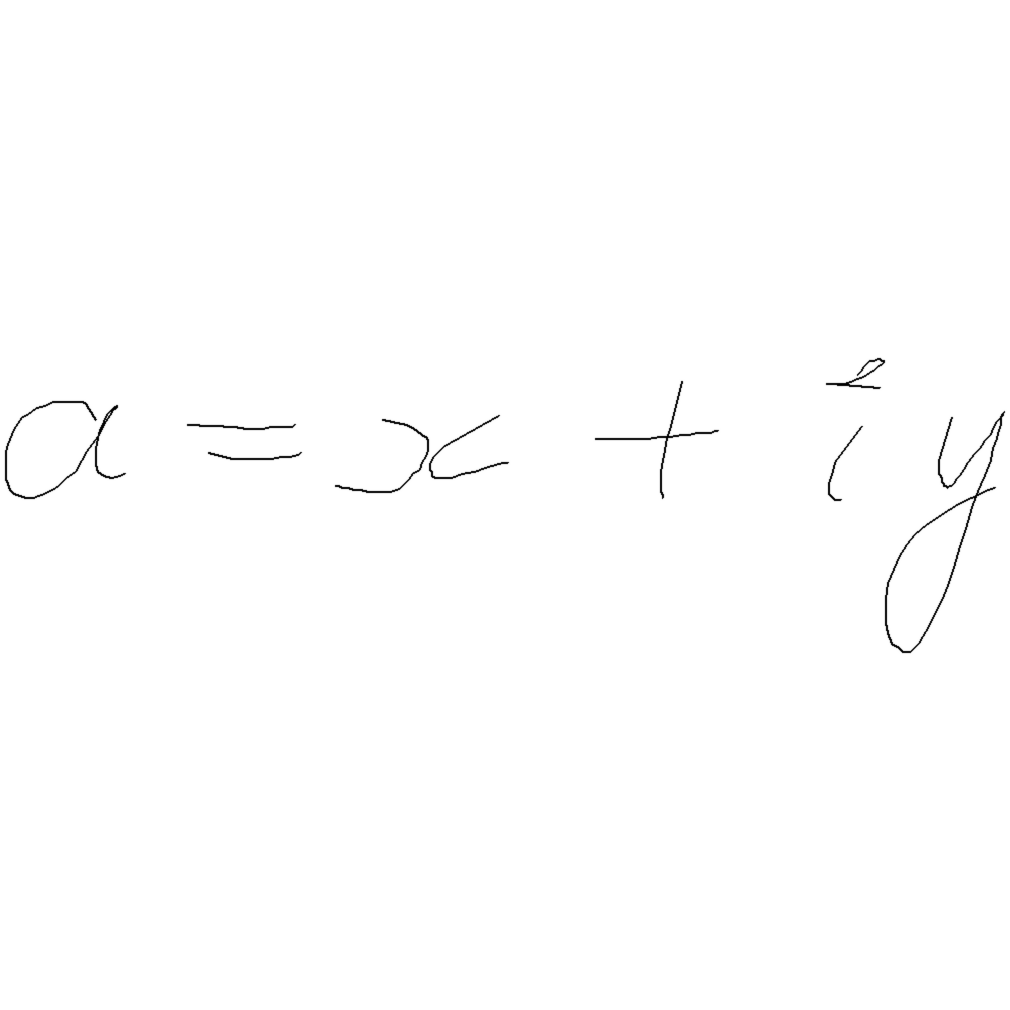 a = x + iy